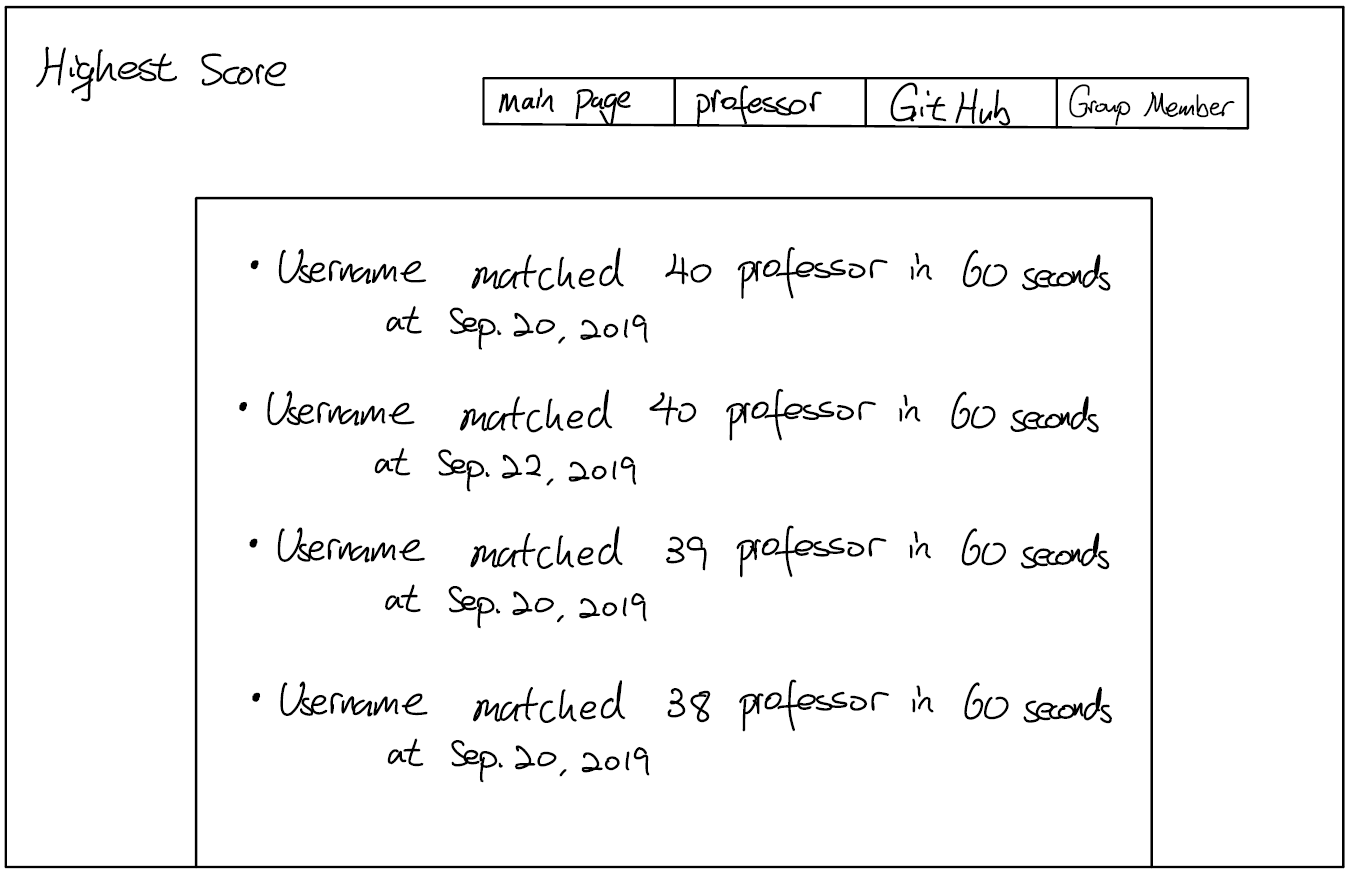 Highest Score
main Page professor GitHub Group Member
• Username matched 40 professor in 60 seconds
at Sep. 20, 2019
• Username matched 40 professor in 60 seconds
at Sep. 22, 2019
• Username matched 39 professor in 60 seconds
at Sep. 20, 2019
• Username matched 38 professor in 60 seconds
at Sep. 20, 2019